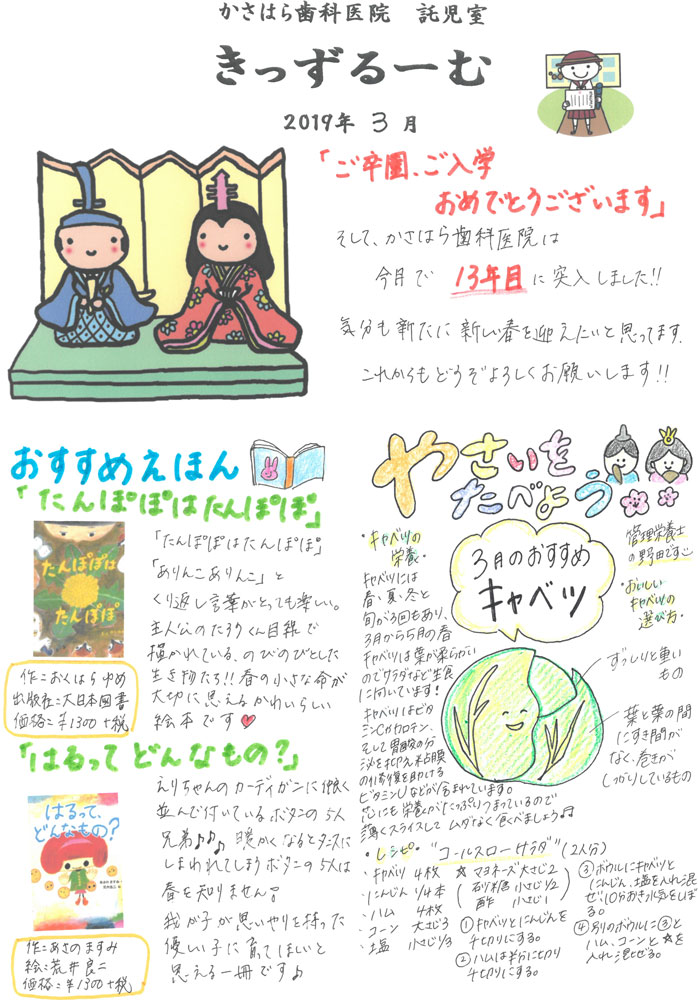 かさはら歯科医院 託児室
きっずるーむ
2019年 3月
「ご卒園、ご入学
おめでとうございます」
そして、かさはら歯科医院は
今月で 13年目 に突入しました!!
気分も新たに新しい春を迎えたいと思ってます.
これからもどうぞよろしくお願いします!!
おすすめえほん
「たんぽぽはたんぽぽ」
たんぽぽは
たんぽぽ
作:おくはらゆめ
出版社:大日本図書
価格:¥1300+税
「たんぽぽはたんぽぽ」
「ありんこありんこ」と
くり返し言葉がとっても楽しい。
主人公のたろうくん目線で
描かれている、のびのびとした
生き物たち!!春の小さな命が
大切に思えるかわいらしい
絵本です♥
「はるってどんなもの?」
はるって、
どんなもの?
作:あさのますみ
絵:荒井良二
価格:¥1300+税
えりちゃんのカーディガンに仲良く
並んで付いているボタンの5人
兄弟♪♪♪ 暖かくなるとタンスに
しまわれてしまうボタンの5人は
春を知りません!
我が子が思いやりを持った
優しい子に育ってほしいと
思える一冊です♪
やさいを
たべよう
管理栄養士
の野田です
3月のおすすめ
キャベツ
・キャベツの
栄養・
キャベツには
春、夏、冬と
旬が3回もあり、
3月から5月の春
キャベツは葉が柔らかい
のでサラダなど生食
に向いています!
キャベツはビタ
ミンCやカロテン、
そして胃酸の分
泌を抑え粘膜
の修復を助ける
ビタミンUなどが含まれています。
芯にも栄養がたっぷりつまっているので
薄くスライスしてムダなく食べましょう♫
・おいしい
キャベツの
選び方・
ずっしりと重い
もの
葉と葉の間
にすき間が
なく、巻きが
しっかりしているもの
・レシピ・ "コールスローサラダ"(2人分)
・キャベツ 4枚
・にんじん 1/4本
・ハム 4枚
・コーン 大さじ3
・塩 小さじ1/3
☆ マヨネーズ 大さじ2
砂糖 小さじ1/2
酢 小さじ1
①キャベツとにんじんを
千切りにする。
②ハムは半分に切り
千切りにする。
③ボウルにキャベツと
にんじん、塩を入れ混
ぜ、10分おき水気をしぼ
る。
④別のボウルに③と
ハム、コーンと☆を
入れ混ぜる。